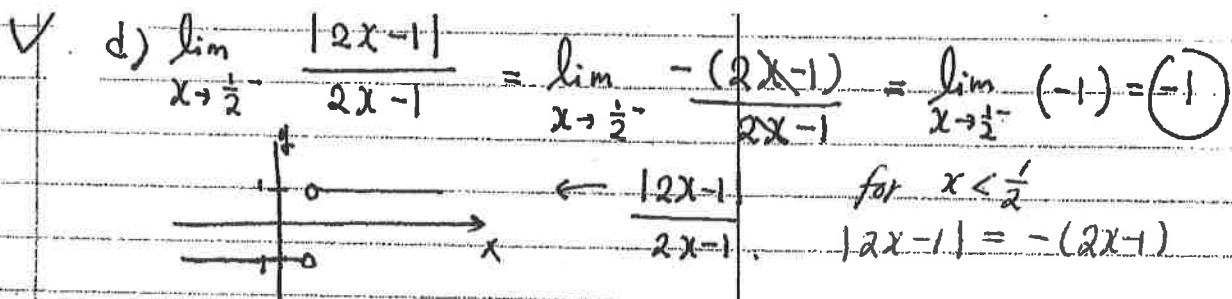 ✓ d) lim x→½⁻ |2x-1| / 2x-1 = lim x→½⁻ -(2x-1) / 2x-1 = lim x→½⁻ (-1) = -1
y
1 ← |2x-1| / 2x-1 for x < ½
x |2x-1| = -(2x-1)
-1